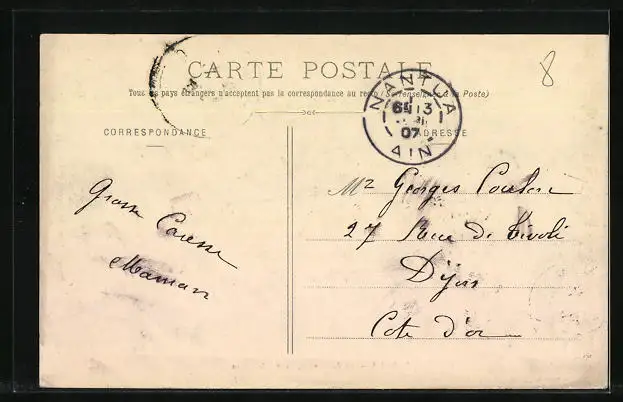 8
CARTE POSTALE
Tous les pays étrangers n'acceptent pas la correspondance au recto (Se renseigner à la Poste)
NANTUA
13
07
AIN
CORRESPONDANCE
ADRESSE
Grosse Caresse
Maman
Mr Georges
27 Rue de Tivoli
Dijon
Cote d'or